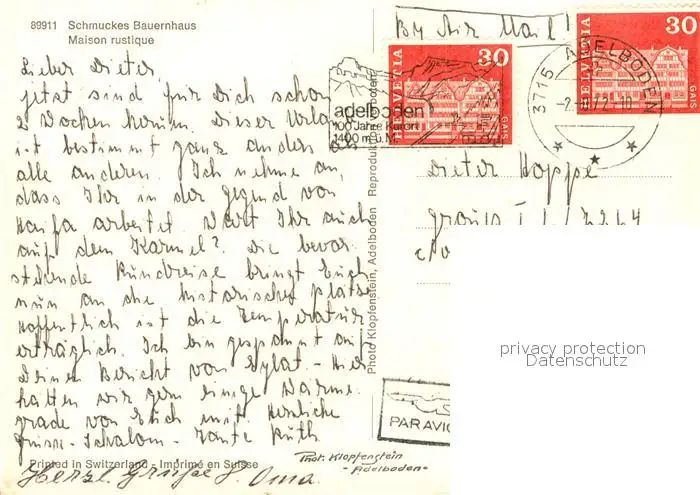 89911 Schmuckes Bauernhaus
Maison rustique
Lieber Dieter,
jetzt sind für Dich schon
2 Wochen herum. Dieser Urlaub
ist bestimmt ganz anders
alle anderen. Ich nehme an,
dass Ihr in der Gegend von
Haifa arbeitet. Wart Ihr auch
auf dem Karmel? Die bevor-
stehende Rundreise bringt Euch
nun an die historischen Plätze
Hoffentlich ist die Temperatur
erträglich. Ich bin gespannt auf
Deinen Bericht von Eylat - Hier
hätten wir gern einige Wärme-
grade von Euch mit. Herzliche
Grüsse - Schalom - Tante Ruth
Printed in Switzerland - Imprimé en Suisse
Herzl. Grüsse Oma.
Photo Klopfenstein, Adelboden Reproduktion verboten
By Air Mail!
HELVETIA 30 GAIS
HELVETIA 30 GAIS
adelboden
100 Jahre Kurort
1400 m ü. M.
3715 ADELBODEN
-2.10.72-10
Dieter Hoppe
PARAVION
Phot. Klopfenstein
- Adelboden -
privacy protection
Datenschutz